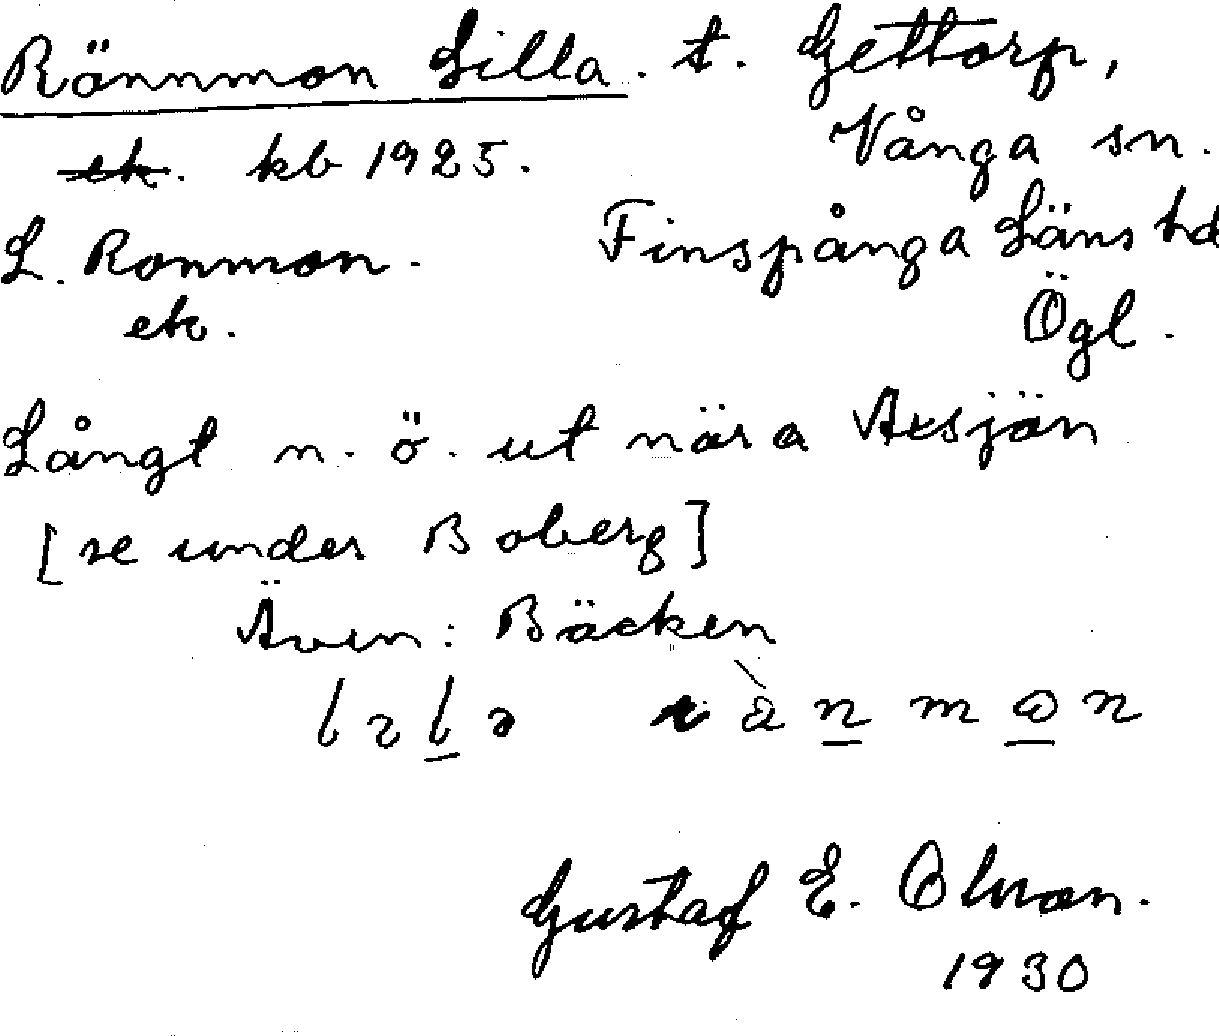 Rännmon Lilla. t. Gettorp,
ek. kb 1925. Vånga sn.
L. Ronmon. Finspånga Läns hd
ek. Ögl.
Långt n. ö. ut nära
[se under Boberg]
Även: Bäcken
Gustaf E. Olsson.
1930